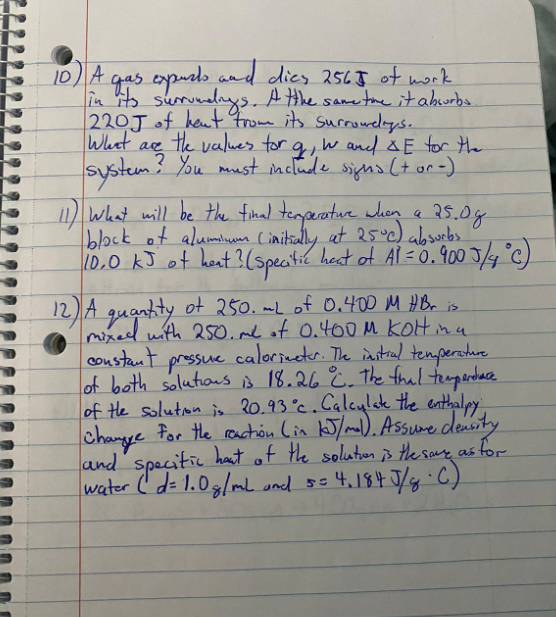 10) A gas expands and does 256 J of work
in its surroundings. At the same time it absorbs
220 J of heat from its surroundings.
What are the values for q, w and ΔE for the
system? You must include signs (+ or -)
11) What will be the final temperature when a 25.0 g
block of aluminum (initially at 25°C) absorbs
10.0 kJ of heat? (specific heat of Al = 0.900 J/g °C)
12) A quantity of 250. mL of 0.400 M HBr is
mixed with 250. mL of 0.400 M KOH in a
constant pressure calorimeter. The initial temperature
of both solutions is 18.26 °C. The final temperature
of the solution is 20.93 °C. Calculate the enthalpy
change for the reaction (in kJ/mol). Assume density
and specific heat of the solution is the same as for
water (d = 1.0 g/mL and s = 4.184 J/g · C)